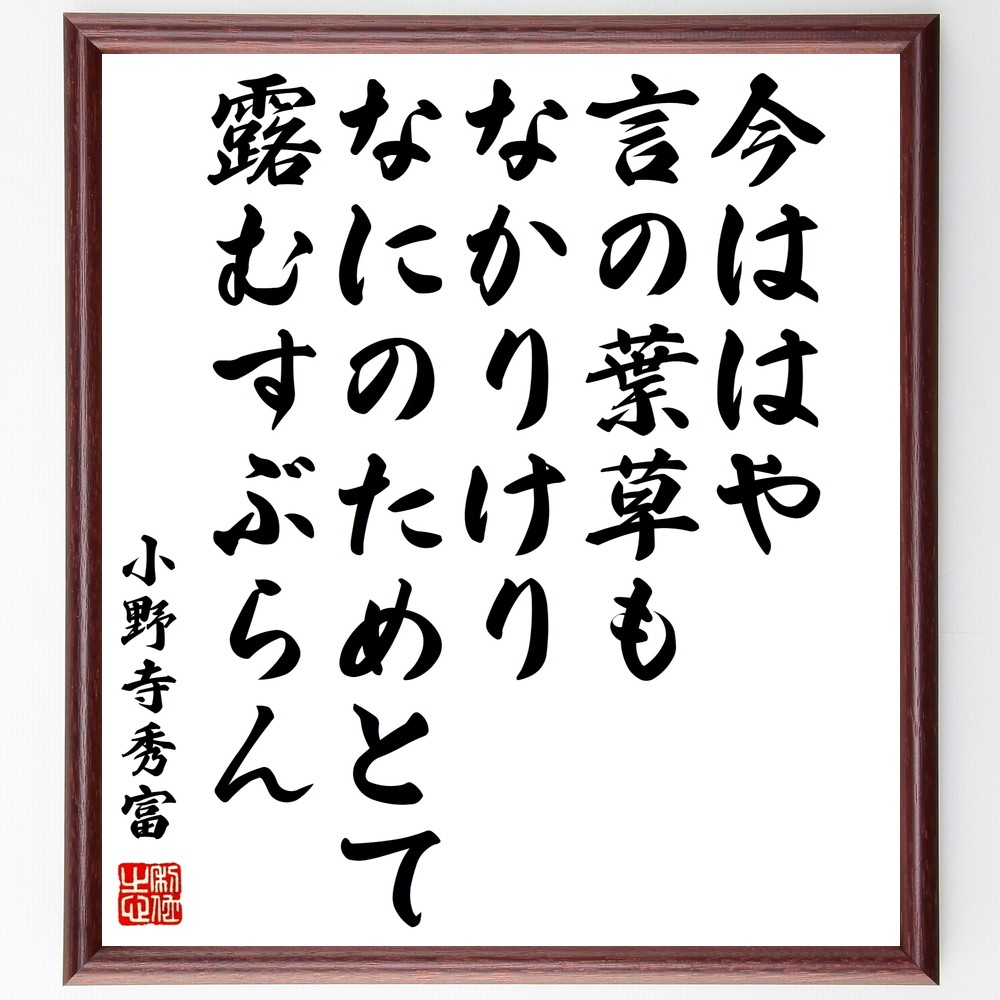 今ははや
言の葉草も
なかりけり
なにのためとて
露むすぶらん
小野寺秀富